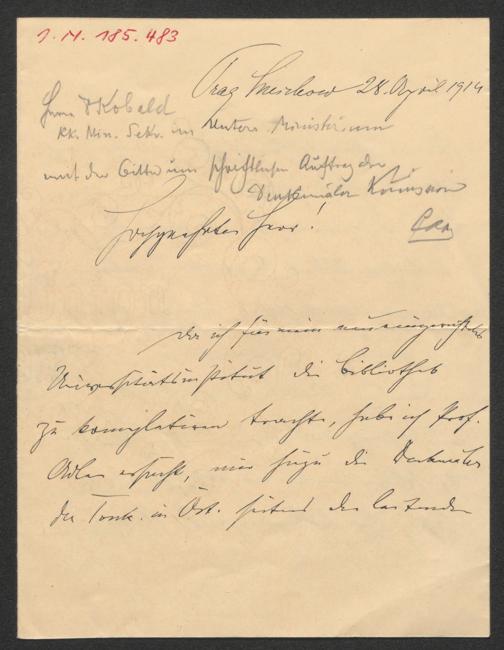 I. N. 185.483
Prag Smichow 28. April 1914
Herrn Dr Kobald
kk. Min. Sekr. im Unterr. Ministerium
mit der Bitte um schriftlichen Auftrag der
Denkmäler Kommission
Hochgeehrter Herr!
Da ich für mein neu eingerichtetes
Universitätsinstitut die Bibliothek
zu komplettieren trachte, habe ich Prof.
Adler ersucht, mir hiezu die Denkmäler
der Tonk. in Öst. seitens der leitenden